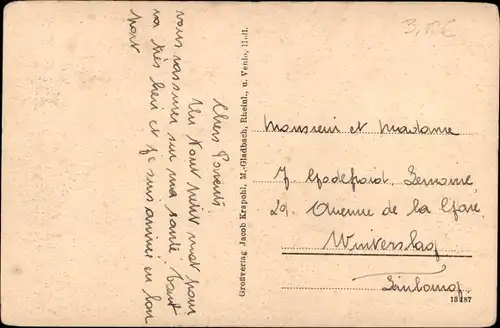 Chers Parents
Un tout petit mot pour
vous rassurer sur ma santé. Tout
va très bien et je suis arrivée en bon
port
Großverlag Jacob Krapohl, M.-Gladbach, Rheinl., u. Venlo, Holl.
3,00€
Monsieur et Madame
J. Godefroid
29. Avenue de la Gare
Winterslag
Limbourg
13187